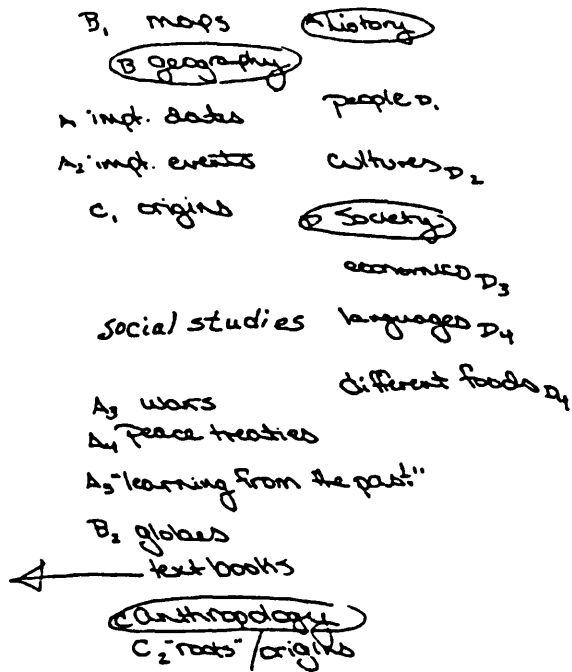 B1 maps A history
B geography
people D1
A impt. dates
A2 impt. events cultures D2
C1 origins D Society
economics D3
social studies languages D4
different foods D4
A3 wars
A4 Peace treaties
A5 "learning from the past."
B2 globes
text books
C anthropology
C2 "roots" / origins